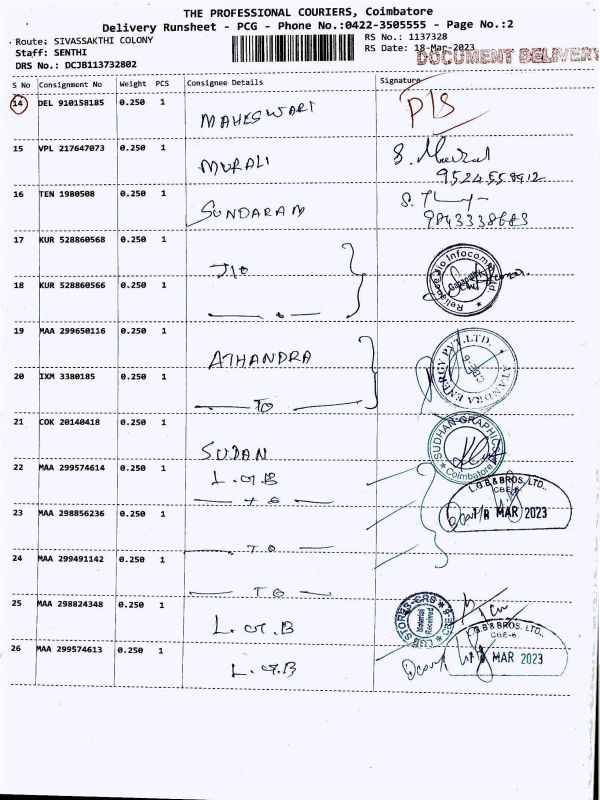 THE PROFESSIONAL COURIERS, Coimbatore
Delivery Runsheet - PCG - Phone No.:0422-3505555 - Page No.:2
Route: SIVASSAKTHI COLONY
Staff: SENTHI
DRS No.: DCJB113732802
RS No.: 1137328
RS Date: 18-Mar-2023
DOCUMENT DELIVERY
S No Consignment No Weight PCS Consignee Details Signature
14 DEL 910158185 0.250 1 MAHESWARI P/S
15 VPL 217647073 0.250 1 MURALI
9524558912
16 TEN 1980508 0.250 1 SUNDARAM
9843338683
17 KUR 528860568 0.250 1 JIO
Reliance Jio Infocomm Ltd
18 KUR 528860566 0.250 1
19 MAA 299650116 0.250 1 ATHANDRA
ATANDRA ENERGY PVT.LTD.
20 IXM 3380185 0.250 1 TO
21 COK 20140418 0.250 1 SUDAN
SUDHAN GRAPHICS
Coimbatore
22 MAA 299574614 0.250 1 L.G.B
TO
L.G.B & BROS. LTD.,
CBE-6.
18 MAR 2023
23 MAA 298856236 0.250 1
TO
24 MAA 299491142 0.250 1
TO
25 MAA 298824348 0.250 1 L.G.B
STORES-CRS
Material
Received
CBE-6
L.G.B & BROS. LTD.,
CBE-6.
26 MAA 299574613 0.250 1 L.G.B
MAR 2023